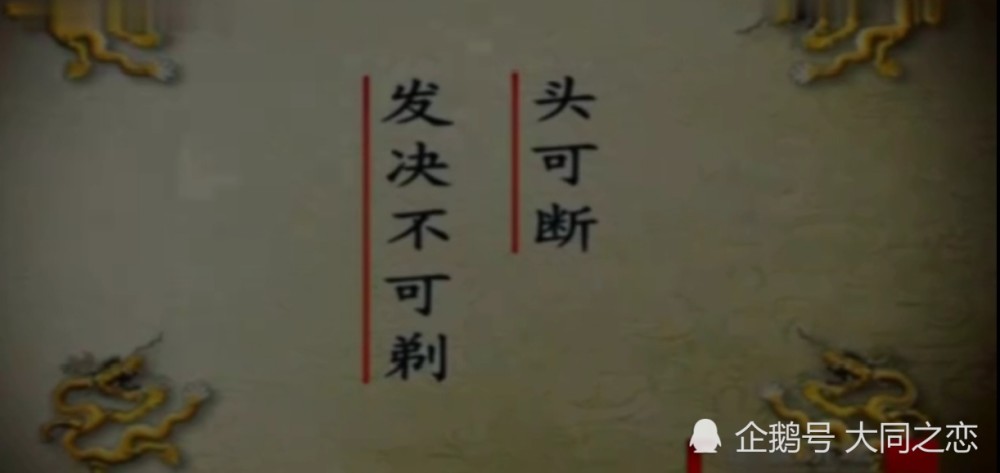 头可断
发决不可剃
企鹅号 大同之恋